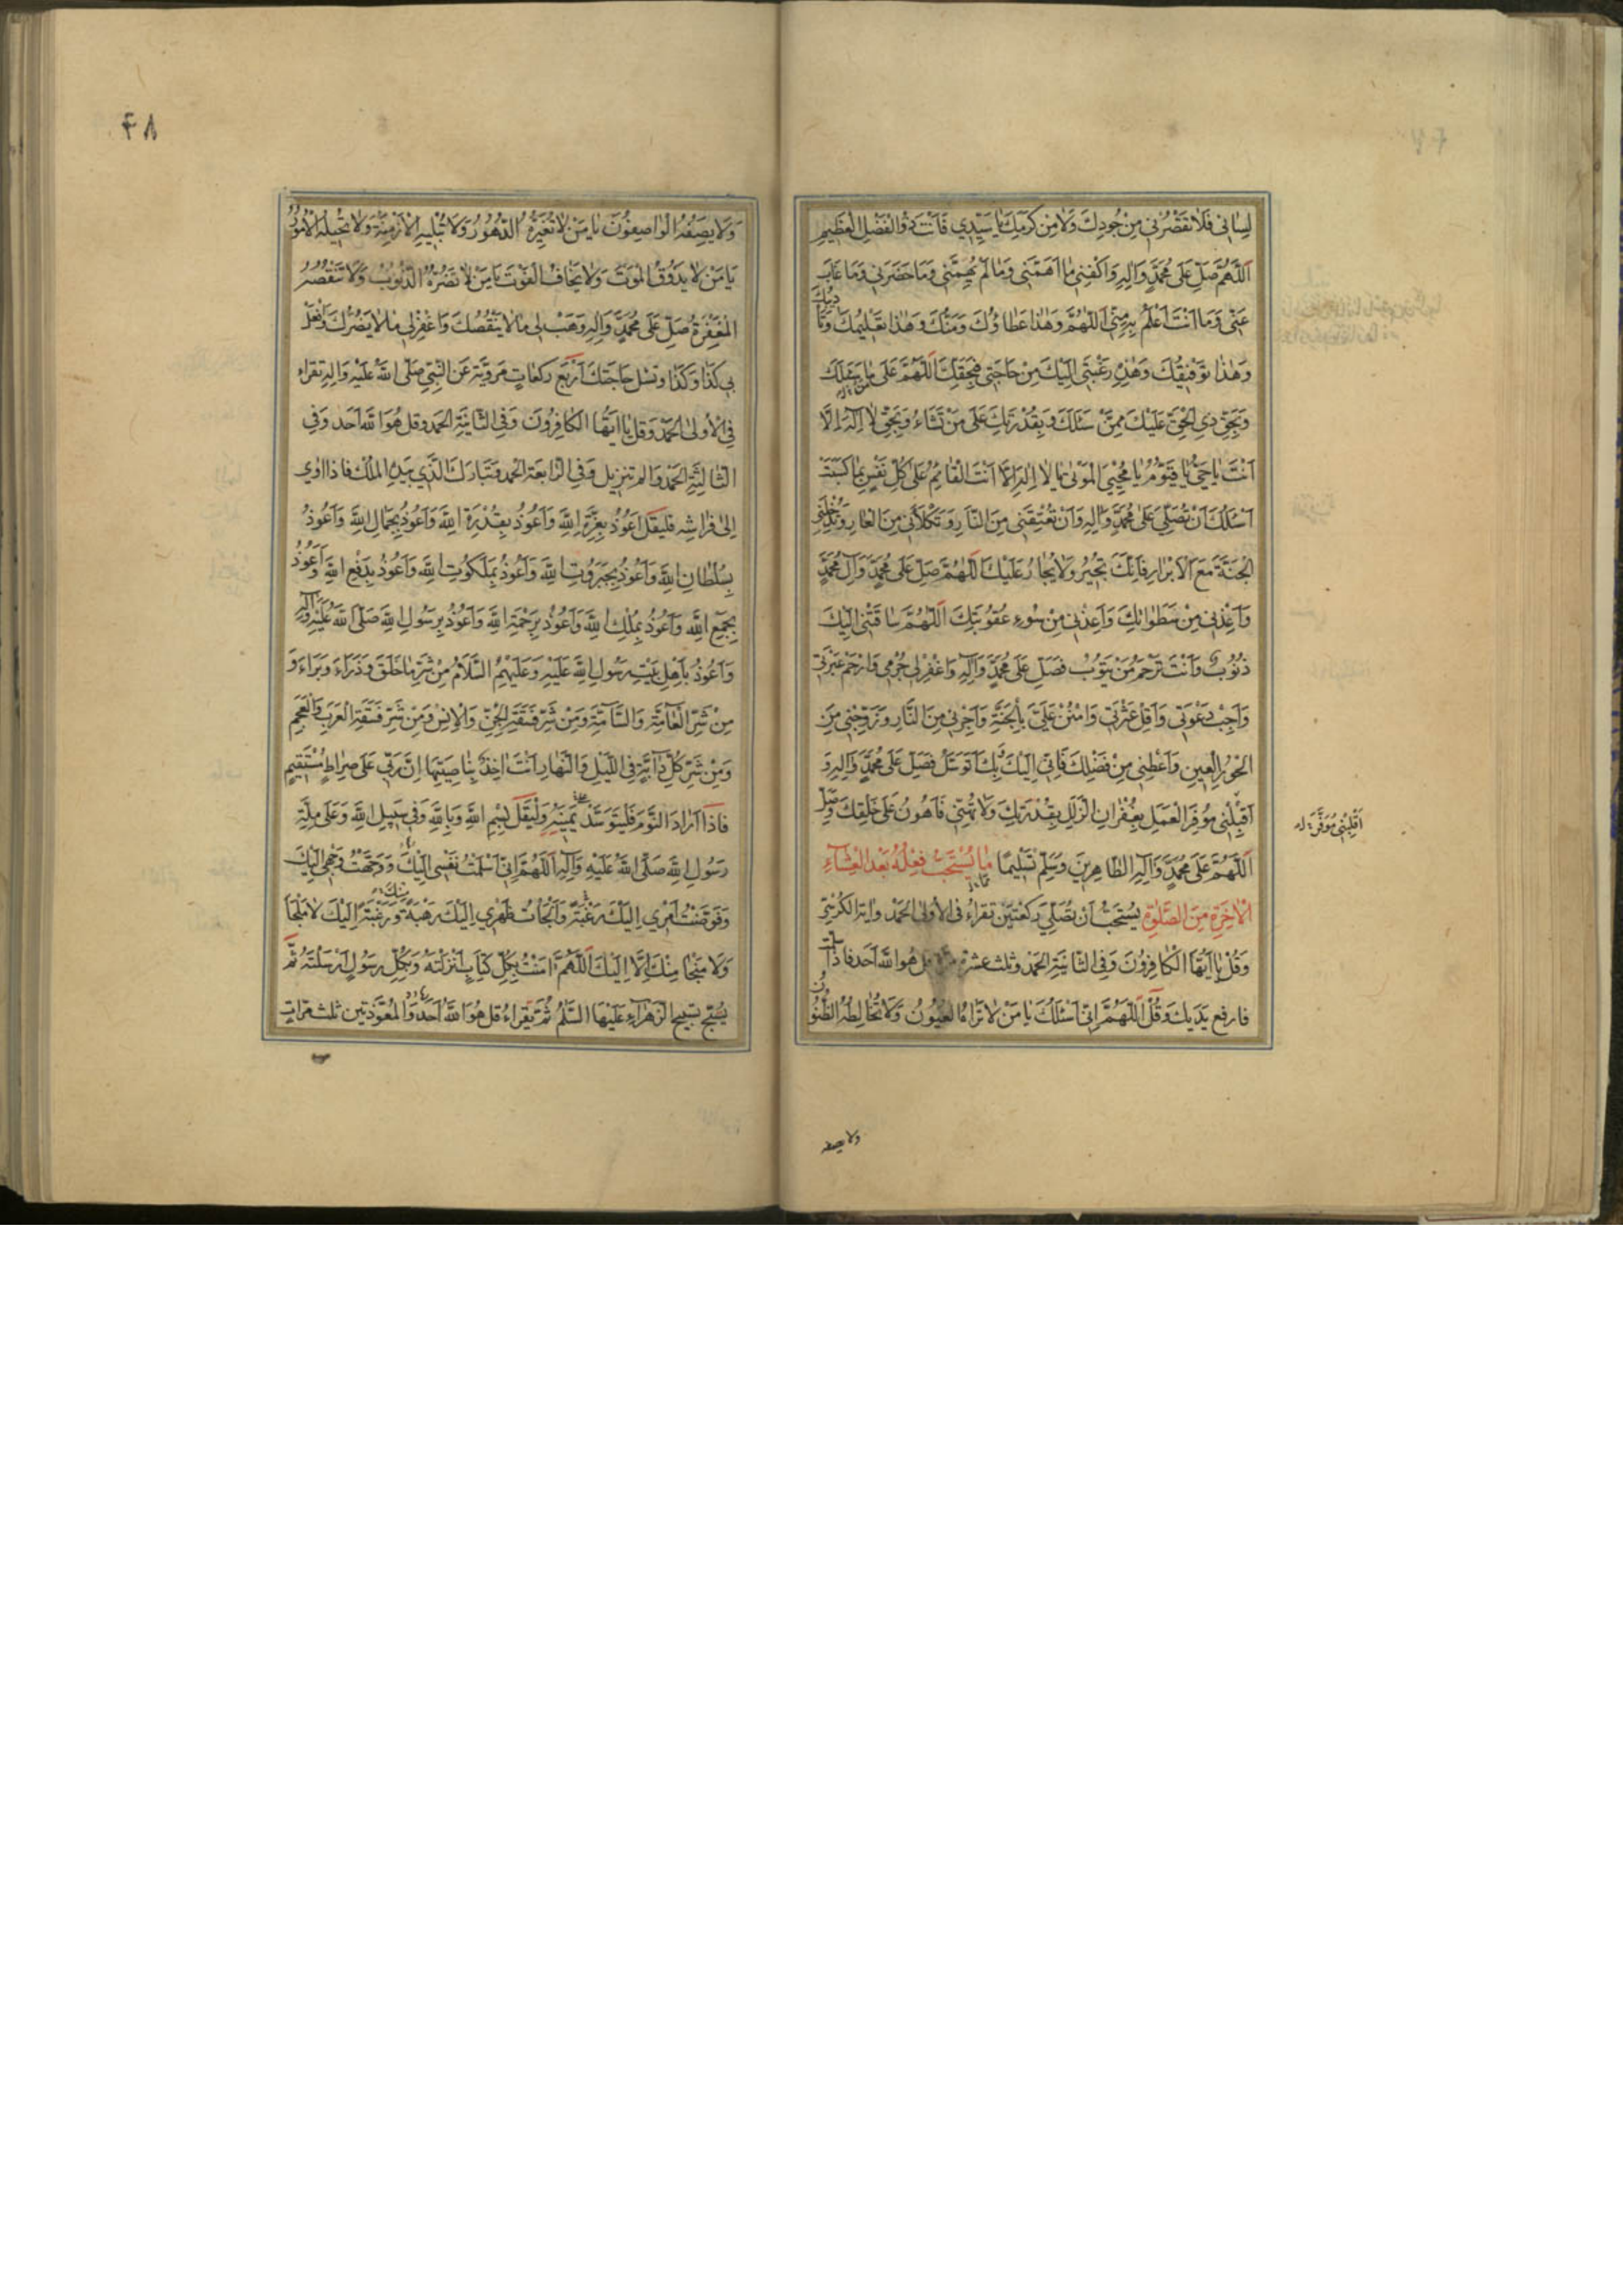 لِسٰانی فَلٰا تَقْصُرْنی مِنْ جُودِكَ وَلٰا مِنْ كَرَمِكَ یٰا سَیِّدِی فَاَنْتَ ذُوالْفَضْلِ الْعَظیمِ
اَللّٰهُمَّ صَلِّ عَلیٰ مُحَمَّدٍ وَ اٰلِهِ وَ اكْفِنِی مٰا اَهَمَّنی وَمٰا لَمْ یُهِمَّنی وَمٰا حَضَرَنی وَمٰا غٰابَ
عَنّی وَمٰا اَنْتَ اَعْلَمُ بِهِ مِنّی اَللّٰهُمَّ وَهٰذا عَطٰاؤُكَ وَمَنُّكَ وَهٰذا تَعْلیمُكَ وَتَأْدیبُكَ
وَهٰذا تَوْفیقُكَ وَهٰذِهِ رَغْبَتی اِلَیْكَ مِنْ حٰاجَتی فَبِحَقِّكَ اَللّٰهُمَّ عَلیٰ مَنْ سَئَلَكَ
وَبِحَقِّ ذِی الْحَقِّ عَلَیْكَ مِمَّنْ سَئَلَكَ وَبِقُدْرَتِكَ عَلیٰ مٰا تَشٰاءُ وَبِحَقِّ لٰا اِلٰهَ اِلّٰا
اَنْتَ یٰا حَیُّ یٰا قَیُّومُ یٰا مُحْیِیَ الْمَوْتیٰ یٰا لٰا اِلٰهَ اِلّٰا اَنْتَ الْقٰائِمُ عَلیٰ كُلِّ نَفْسٍ بِمٰا كَسَبَتْ
اَسْئَلُكَ اَنْ تُصَلِّیَ عَلیٰ مُحَمَّدٍ وَ اٰلِهِ وَاَنْ تُعْتِقَنی مِنَ النّٰارِ وَتَكْلَأَنی مِنَ الْعٰارِ وَتُدْخِلَنِی
الْجَنَّةَ مَعَ الْاَبْرٰارِ فَاِنَّكَ تُجیرُ وَلٰا یُجٰارُ عَلَیْكَ اَللّٰهُمَّ صَلِّ عَلیٰ مُحَمَّدٍ وَ اٰلِ مُحَمَّدٍ
وَاَعِذْنی مِنْ سَطَوٰاتِكَ وَاَعِذْنی مِنْ سُوءِ عُقُوبَتِكَ اَللّٰهُمَّ سٰاقَتْنی اِلَیْكَ
ذُنُوبی وَاَنْتَ تَرْحَمُ مَنْ یَتُوبُ فَصَلِّ عَلیٰ مُحَمَّدٍ وَ اٰلِهِ وَاغْفِرْلی جُرْمی وَارْحَمْ عَبْرَتی
وَاَجِبْ دَعْوَتی وَاَقِلْ عَثْرَتی وَامْنُنْ عَلَیَّ بِالْجَنَّةِ وَاَجِرْنی مِنَ النّٰارِ وَزَوِّجْنی مِنَ
الْحُورِ الْعینِ وَاَعْطِنی مِنْ فَضْلِكَ فَاِنّی اِلَیْكَ بِكَ اَتَوَسَّلُ فَصَلِّ عَلیٰ مُحَمَّدٍ وَ اٰلِهِ وَ
اَقْلِبْنی مُوَفَّرَ الْعَمَلِ بِغُفْرٰانِ الزَّلَلِ بِقُدْرَتِكَ وَلٰا تُهِنّی فَاَهُونُ عَلیٰ خَلْقِكَ وَصَلِّ
اَقْلِبْنی مُوَفَّرَ
اَللّٰهُمَّ عَلیٰ مُحَمَّدٍ وَ اٰلِهِ الطّٰاهِرینَ وَسَلِّمْ تَسْلیمًا مٰا یُسْتَحَبُّ فِعْلُهُ بَعْدَ الْعِشٰاءِ
الْاٰخِرَةِ مِنَ الصَّلٰوةِ یُسْتَحَبُّ اَنْ تُصَلِّیَ رَكْعَتَیْنِ تَقْرَاءُ فی الْاُولیٰ الْحَمْدَ وَایَةَ الْكُرْسِیِّ
وَقُلْ یٰا اَیُّهَا الْكٰافِرُونَ وَفی الثّٰانِیَةِ الْحَمْدَ وثلث عشرة مرّة قل هُوَ اللّٰهُ اَحَد فَاذا سلّمت
فارفع یَدَیْكَ وَقُلْ اَللّٰهُمَّ اِنّی اَسْئَلُكَ یٰا مَنْ لٰا تَرٰاهُ الْعُیُونُ وَلٰا تُخٰالِطُهُ الظُّنُونُ
ولا یصفه
۴۸
وَلٰا یَصِفُهُ الْوٰاصِفُونَ یٰا مَنْ لٰا تُغَیِّرُهُ الدُّهُورُ وَلٰا تُبْلیهِ الْاَزْمِنَةُ وَلٰا تُحیلُهُ الْاُمُورُ
یٰا مَنْ لٰا یَذُوقُ الْمَوْتَ وَلٰا یَخٰافُ الْفَوْتَ یٰا مَنْ لٰا تَضُرُّهُ الذُّنُوبُ وَلٰا تَنْقُصُهُ
الْمَغْفِرَةُ صَلِّ عَلیٰ مُحَمَّدٍ وَ اٰلِهِ وَهَبْ لی مٰا لٰا یَنْقُصُكَ وَاغْفِرْلی مٰا لٰا یَضُرُّكَ وَافْعَلْ
بی كَذٰا وَكَذٰا وَتسْل حٰاجَتَكَ اَرْبَع رَكَعٰاتٍ مَرْوِیَّة عَنِ النَّبِیِّ صَلَّی اللّٰهُ عَلَیْهِ وَ اٰلِهِ تقراء
فِی الْاُولیٰ الْحَمْدَ وَقُلْ یٰا اَیُّهَا الْكٰافِرُونَ وَفی الثّٰانِیَةِ الْحَمد وقل هُوَ اللّٰهُ اَحَد وَفی
الثّٰالِثَةِ الْحَمْدَ وَالم تنزیل وَفی الرّٰابِعَة الحمد وَتَبٰارَكَ الَّذی بِیَدِهِ الْمُلْكُ فاذا اوی
اِلیٰ فِرٰاشِهِ فلیقل اَعُوذُ بِعِزَّةِ اللّٰهِ وَاَعُوذُ بِقُدْرَةِ اللّٰهِ وَاَعُوذُ بِجَمٰالِ اللّٰهِ وَاَعُوذُ
بِسُلْطٰانِ اللّٰهِ وَاَعُوذُ بِجَبَرُوتِ اللّٰهِ وَاَعُوذُ بِمَلَكُوتِ اللّٰهِ وَاَعُوذُ بِدَفْعِ اللّٰهِ وَاَعُوذُ
بِجَمْعِ اللّٰهِ وَاَعُوذُ بِمُلْكِ اللّٰهِ وَاَعُوذُ بِرَحْمَةِ اللّٰهِ وَاَعُوذُ بِرَسُولِ اللّٰهِ صَلَّی اللّٰهُ عَلَیْهِ وَ اٰلِهِ
وَاَعُوذُ بِاَهْلِ بَیْتِ رَسُولِ اللّٰهِ عَلَیْهِ وَعَلَیْهِمُ السَّلٰامُ مِنْ شَرِّ مٰا خَلَقَ وَذَرَاءَ وَبَرَاءَ وَ
مِنْ شَرِّ الْعٰامَّةِ وَالسّٰامَّةِ وَمِنْ شَرِّ فَسَقَةِ الْجِنِّ وَالْاِنْسِ وَمِنْ شَرِّ فَسَقَةِ الْعَرَبِ وَالْعَجَمِ
وَمِنْ شَرِّ كُلِّ دٰابَّةٍ فی اللَّیْلِ وَالنَّهٰارِ اَنْتَ اٰخِذٌ بِنٰاصِیَتِهٰا اِنَّ رَبّی عَلیٰ صِرٰاطٍ مُسْتَقیمٍ
فَاذا اَرٰادَ النَّوْمَ فَلْیَتَوَسَّدْ یَمینَهُ وَلْیَقُلْ بِسْمِ اللّٰهِ وَبِاللّٰهِ وَفی سَبیلِ اللّٰهِ وَعَلیٰ مِلَّةِ
رَسُولِ اللّٰهِ صَلَّی اللّٰهُ عَلَیْهِ وَ اٰلِهِ اَللّٰهُمَّ اِنّی اَسْلَمْتُ نَفْسی اِلَیْكَ وَوَجَّهْتُ وَجْهی اِلَیْكَ
وَفَوَّضْتُ اَمْری اِلَیْكَ رَغْبَةً وَاَلْجَأْتُ ظَهْری اِلَیْكَ رَهْبَةً مِنْكَ وَرَغْبَةً اِلَیْكَ لٰا مَلْجَأَ
وَلٰا مَنْجٰا مِنْكَ اِلّٰا اِلَیْكَ اَللّٰهُمَّ اٰمَنْتُ بِكُلِّ كِتٰابٍ اَنْزَلْتَهُ وَبِكُلِّ رَسُولٍ اَرْسَلْتَهُ ثُمَّ
یُسَبِّح تَسْبیح الزَّهْرٰاءِ عَلَیْهَا السَّلٰمُ ثُمَّ یَقْرَاءُ قل هُوَ اللّٰهُ اَحَد وَالْمُعَوَّذَتَین ثلث مَرّٰاتٍ